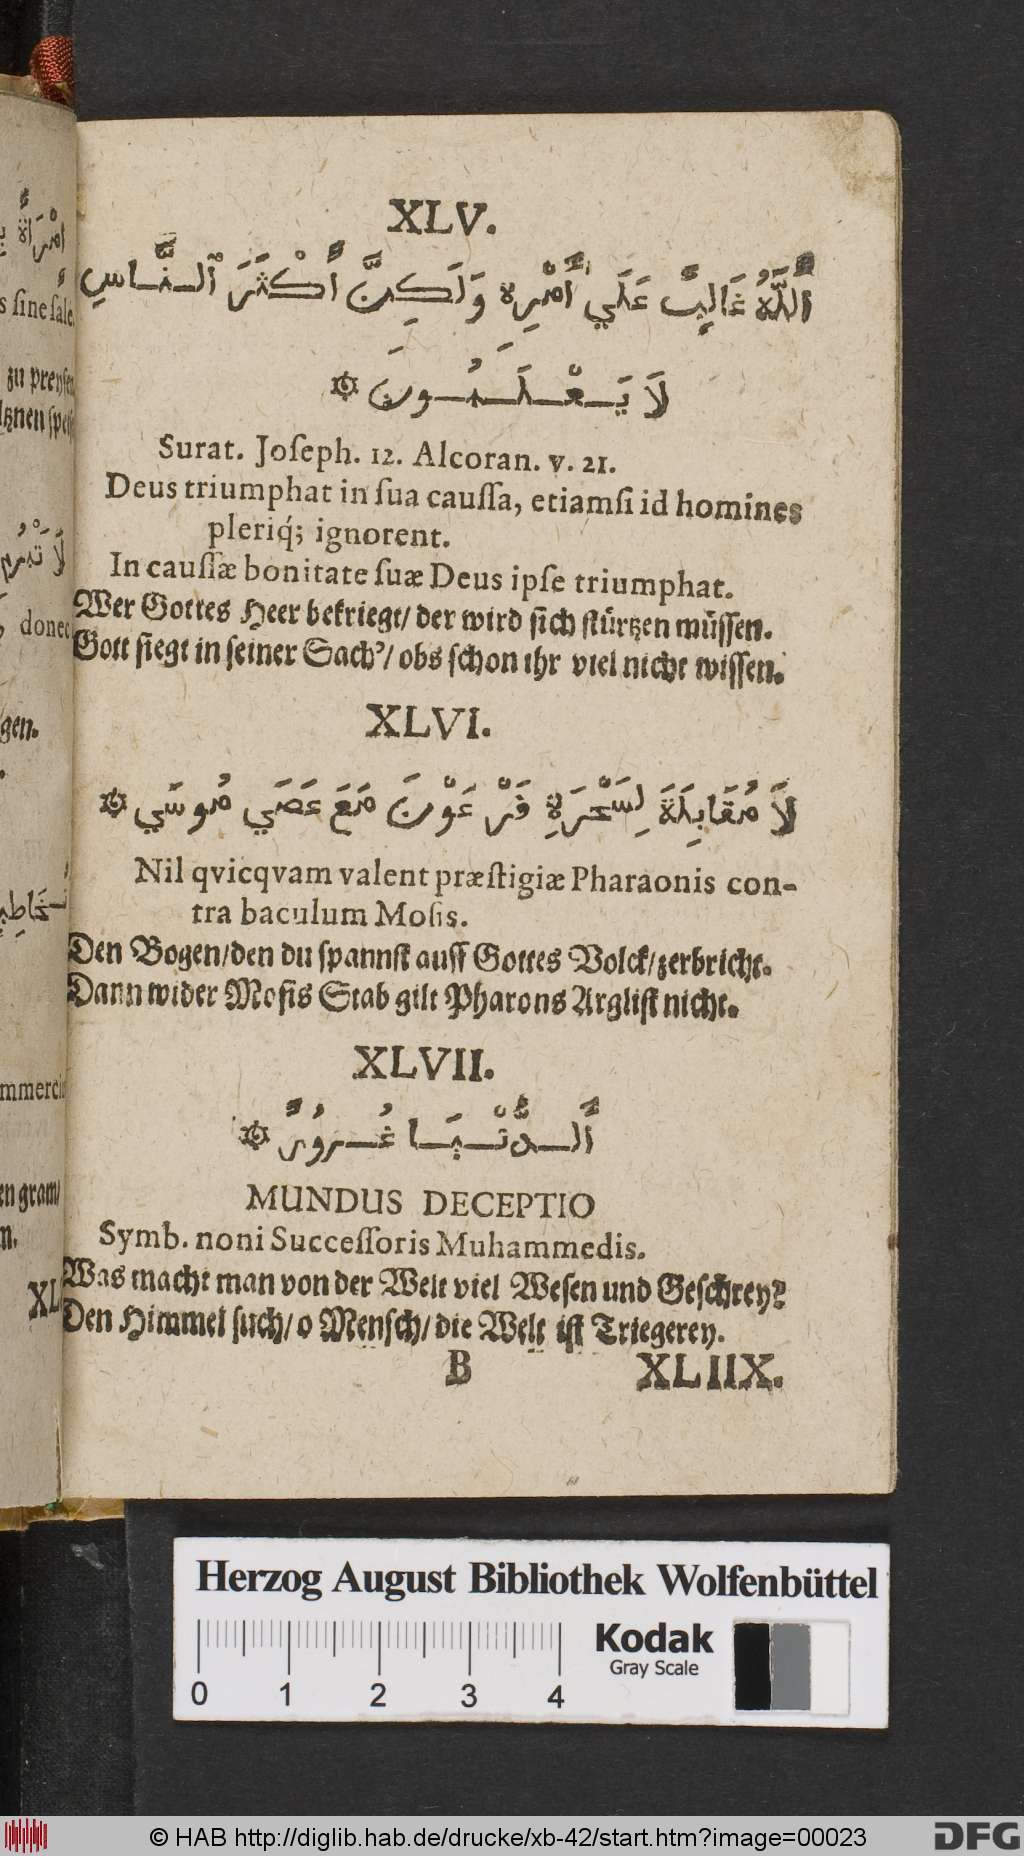 XLV.
أَللَّهُ غَالِبٌ عَلَي أَمْرِهِ وَلَكِنَّ أَكْثَرَ ٱلنَّاسِ
لَا يَعْلَمُونَ
Surat. Joſeph. 12. Alcoran. v. 21.
Deus triumphat in ſua cauſſa, etiamſi id homines
pleriq́; ignorent.
In cauſſæ bonitate ſuæ Deus ipſe triumphat.
Wer Gottes Heer bekriegt/ der wird ſich ſtürtzen müſſen.
Gott ſiegt in ſeiner Sach'/ obs ſchon ihr viel nicht wiſſen.
XLVI.
لَا مُقَابِلَةَ لِسَحْرَةِ فَرْعَوْنَ مَعَ عَصَي مُوسَي
Nil qvicqvam valent præſtigiæ Pharaonis con-
tra baculum Moſis.
Den Bogen/ den du ſpannſt auff Gottes Volck/ zerbricht.
Dann wider Moſis Stab gilt Pharons Argliſt nicht.
XLVII.
أَلدُّنْيَا غُرُورٌ
MUNDUS DECEPTIO
Symb. noni Succeſſoris Muhammedis.
Was macht man von der Welt viel Weſen und Geſchrey?
Den Himmel ſuch/ o Menſch/ die Welt iſt Triegerey.
B XLIIX.
s ſine ſale
zu preyſen
donec
gen.
mmerci
en gram/
n.
XL
Herzog August Bibliothek Wolfenbüttel
0 1 2 3 4
Kodak
Gray Scale
© HAB http://diglib.hab.de/drucke/xb-42/start.htm?image=00023
DFG